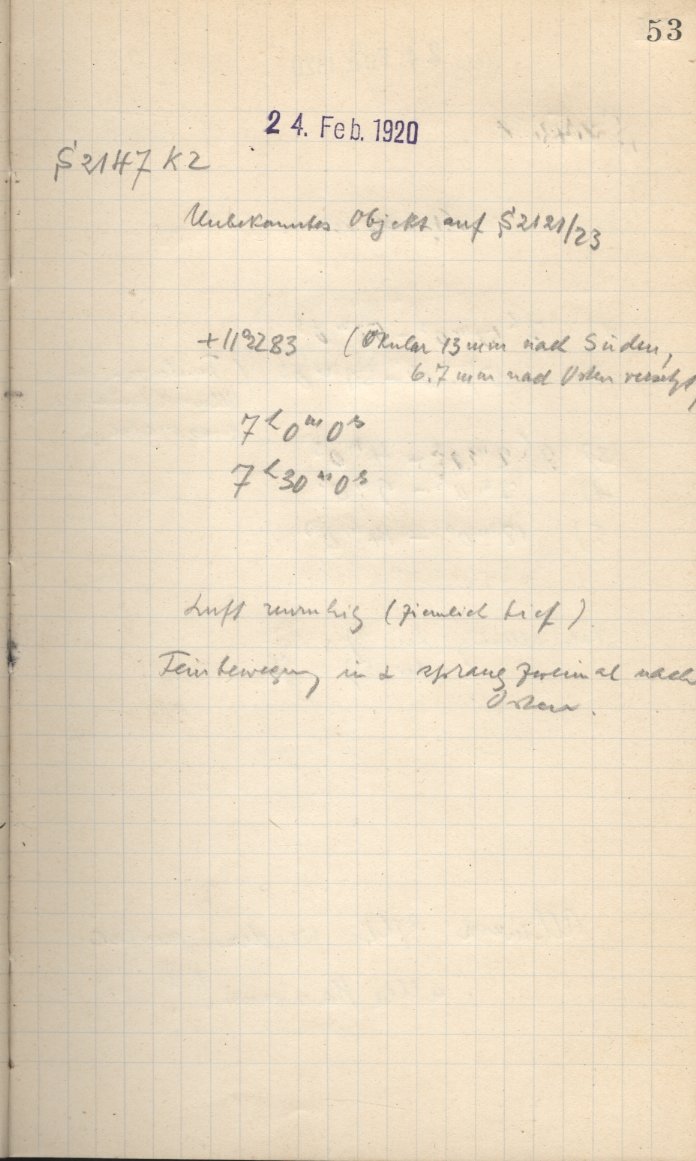 53
24. Feb. 1920
S 2147 K2
Unbekanntes Objekt auf S 2121/23
+11°2283 (Okular 13 mm nach Süden,
6.7 mm nach Osten versetzt)
7h 0m 0s
7h 30m 0s
Luft unruhig (ziemlich tief)
Feinbewegung in α sprang zweimal nach
Osten.